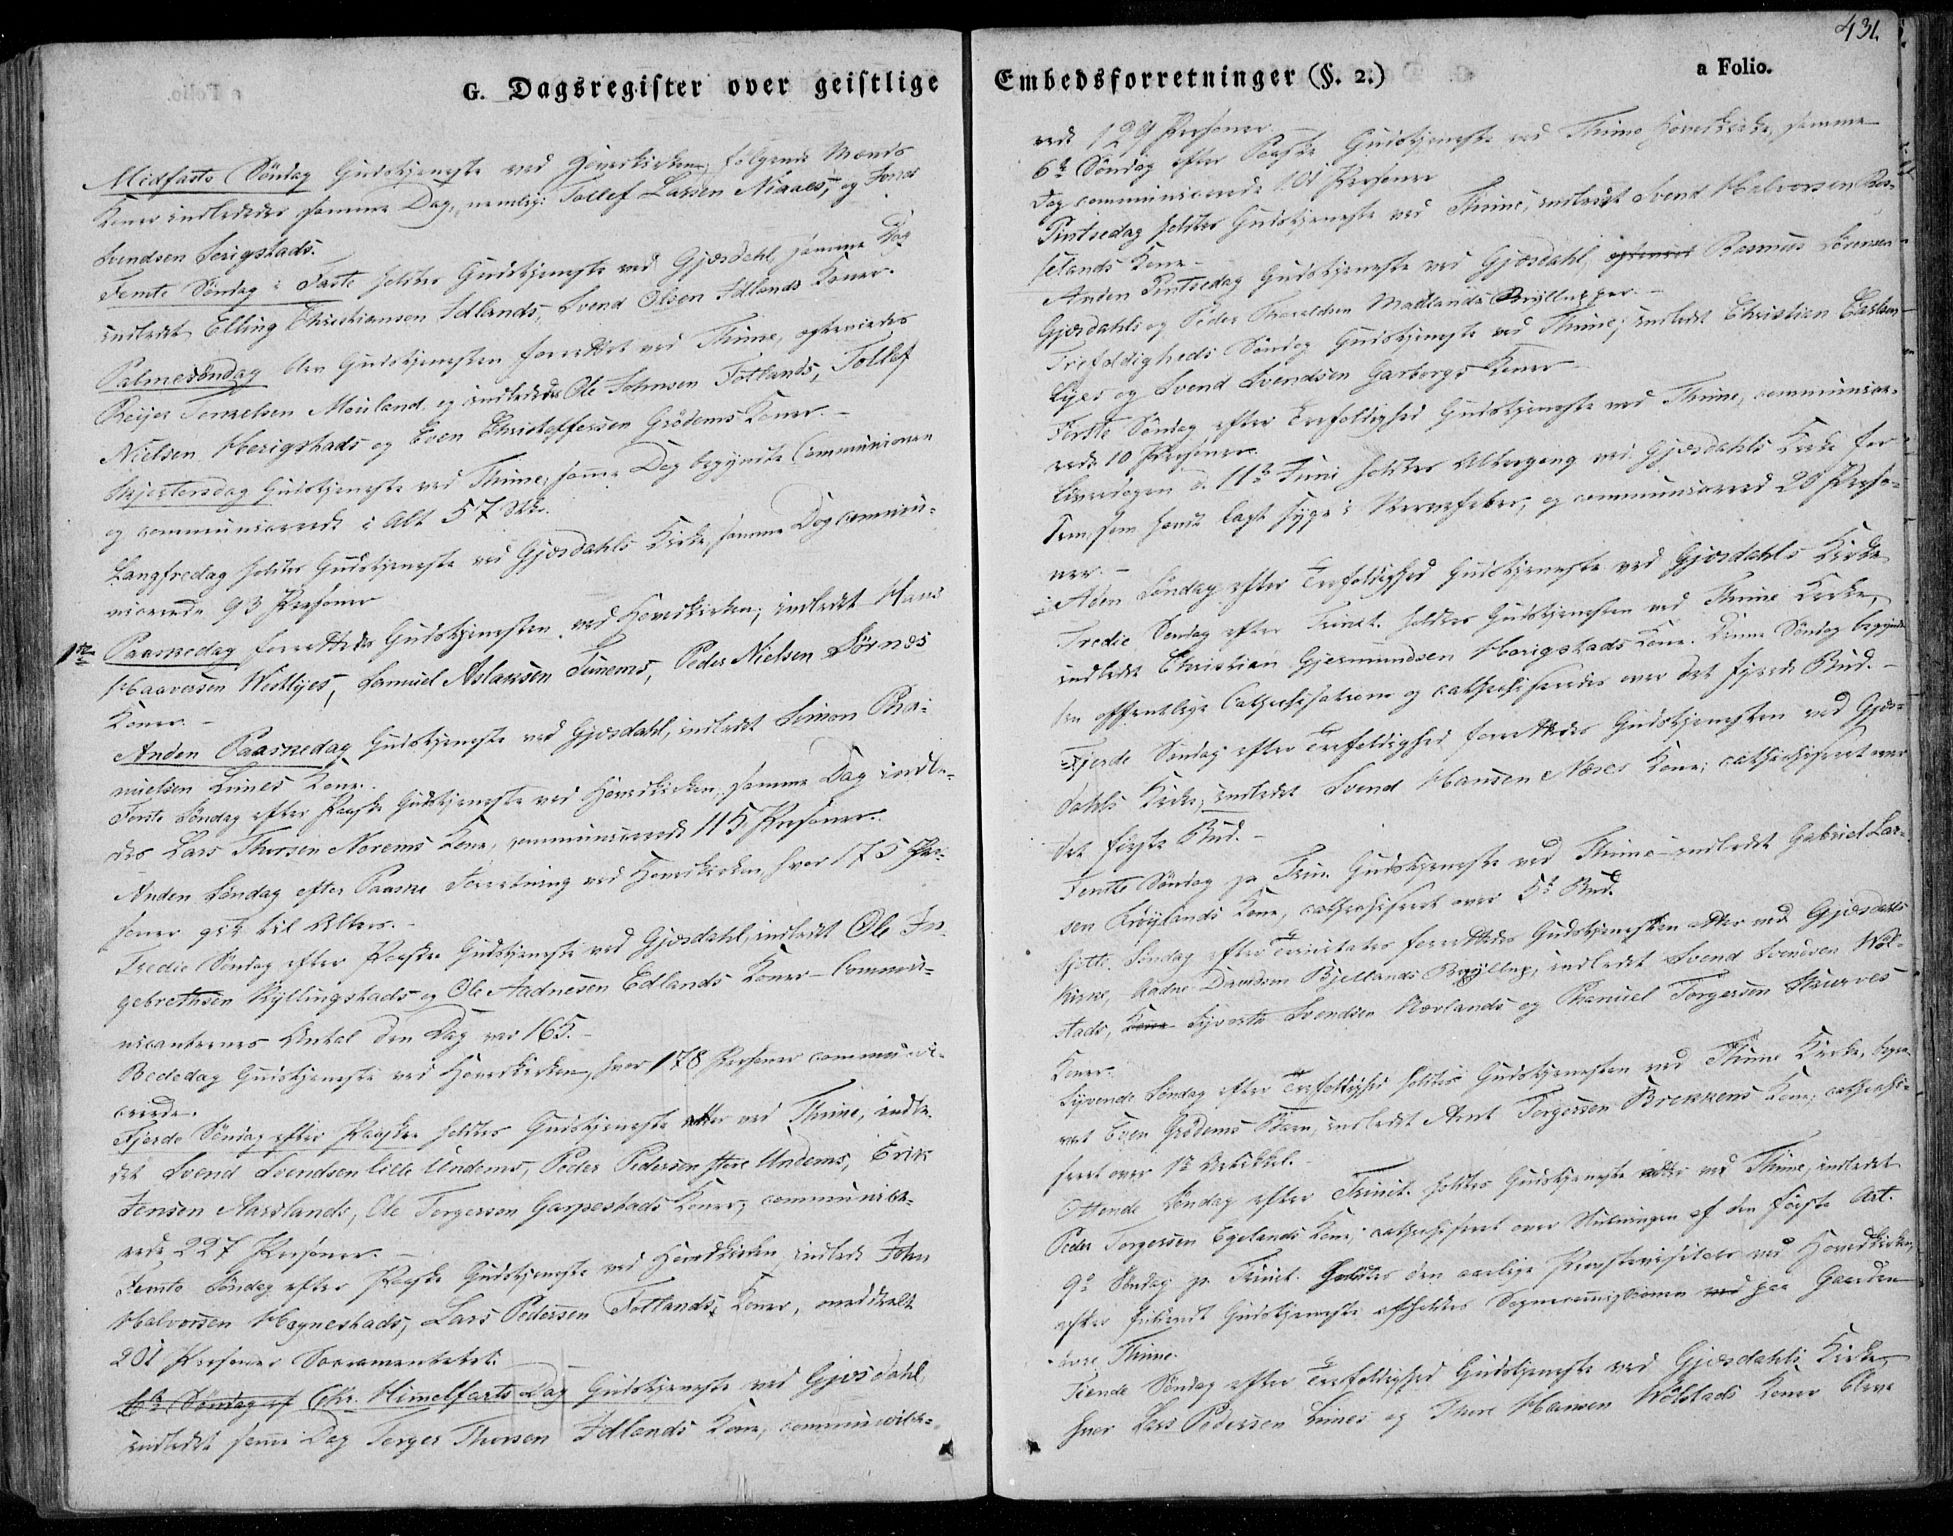 G. Dagsregister over geistlige
Midfaste Söndag Gudstjeneste ved Hovedkirken; følgende Mænds
Koner indlededes samme Dag, nemlig: Tollef Larsen Niaaes, og Jonas
Svendsen Serigstads.
Femte Söndag i Faste holdtes Gudstjeneste ved Gjæsdahl, samme Dag
indledet Elling Christiansen Idlands, Svend Olsen Idlands Koner.
Palmesöndag blev Gudstjenesten forrettet ved Thime, copuleredes
Reier Tønnelsen Mauland og indlededes Ole Johnsen Fotlands, Tollef
Nielsen Herigstads og Even Christoffersen Grödems Koner. –
Skjertorsdag Gudstjeneste ved Thime, samme Dag begyndte Communionen
og communicerede i Alt 57 Stk.
Langfredag holdtes Gudstjeneste ved Gjæsdahls Kirke, samme Dag commu-
nicerede 93 Personer
1ste Paaskedag forrettedes Gudstjenesten ved Hovedkirken; indledet Hans
Haaversen Westlyes, Samuel Aslaksen Tunems, Peder Nielsen Sörnes
Koner. –
Anden Paaskedag Gudstjeneste ved Gjæsdahl, indledet Simon
nielsen Limes Kone.
Förste Söndag efter Paaske Gudstjeneste ved Hovedkirken, samme Dag indle-
des Lars Thorsen Norems Kone, communicerede 115 Personer.
Anden Söndag efter Paaske Forretning ved Hovedkirken, hvor 175 Per-
soner gik til Alters. –
Tredie Söndag efter Paaske Gudstjeneste ved Gjæsdahl, indledet Ole In-
gebrethsen Kyllingstads og Ole Aadnesen Edlands Koner – Commu-
nicanternes Antal den Dag var 165. –
Bededag Gudstjeneste ved Hovedkirken, hvor 178 Personer communi-
cerede.
Fjerde Söndag efter Paaske holdtes Gudstjeneste atter ved Thime, indle-
det Svend Svendsen lille Undems, Peder Pedersen store Undems, Erik
Jensen Aarslands, Ole Torgersen Garpestads Koner, communice-
rede 227 Personer. –
Femte Söndag efter Paaske Gudstjeneste ved Hovedkirken, indledt John
Halvorsen Hognestads, Lars Pedersen Fotlands Koner, meddeelt
201 Personer Sacramentet.
6te Söndag ef Chr. Himelfarts Dag Gudstjeneste ved Gjæsdahl,
indledet samme Dag Torger Thorsen Idlands Kone, communice-
431.
Embedsforretninger (§. 2.)
a Folio.
rede 129 Personer.
6te Söndag efter Paaske Gudstjeneste ved Thime Hovedkirke, samme
Dag communicerede 101 Personer
Pintsedag holdtes Gudstjeneste ved Thime, indledet Svend Halvorsen
selands Kone –
Anden Pintsedag Gudstjeneste ved Gjæsdahl, Rasmus Sörensen
Gjæsdahls og Peder Thoraldsen Madlands Bryllupper. –
Trefoldigheds Söndag Gudstjeneste ved Thime; indledt Christian
Lyes og Svend Svendsen Garborgs Koner
Förste Söndag efter Trefoldighed Gudstjeneste ved Thime, communice-
rede 10 Personer.
d. 11te Juni holdtes Altergang ved Gjæsdahls Kirke for
Dem, som havde lagt syge i Nervefeber, og communicerede 20 Perso-
ner. –
Aden Söndag efter Trefoldighed Gudstjeneste ved Gjæsdahls Kirke
Tredie Søndag efter Trinit. holdtes Gudstjenesten ved Thime Kirke,
indledet Christian Gjermundsen Herigstads Kone. Denne Söndag begyndte
den offentlige Catechisation og catechiseredes over det fjerde Bud. –
Fjerde Söndag efter Trefoldighed forrettedes Gudstjenesten ved Gjæs-
dahls Kirke; indledet Svend Hansen Næses Kone; catechiseret over
det første Bud. –
Femte Söndag p. Trin. Gudstjeneste ved Thime – indledet Gabriel Lar-
sen Kröylands Kone, catechiseret over 5te Bud.
Sjette Søndag efter Trinitatis forrettedes Gudstjenesten atter ved Gjæsdahls
Kirke, Aadne Davidsen Bjellands Bryllup, indledet Svend Svendsen Wöl-
stads, Kone Syvert Svendsen Nævlands og Phanuel Torgersen Skurves
Koner.
Syvende Söndag efter Trefoldighed holdtes Gudstjenesten ved Thime Kirke, begra-
vet Even Grødems Barn, indledet Arnt Torgersen Brekkens Kone; catechi-
seret over 1ste Artikkel. –
Ottende Söndag efter Trinit. holdtes Gudstjeneste atter ved Thime, indledet
Peder Torgersen Egelands Kone; catechiseret over Slutningen af den første Art.
9de Söndag p. Trinit. holdtes den aarlige Provstevisitats ved Hovedkirken,
efter fuldendt Gudstjeneste afholdtes Sognecommissionen ved paa Gaarden
övre Thime.
Tiende Söndag efter Trefoldighed Gudstjeneste ved Gjæsdahls Kirke,
hvor Lars Pedersen Limes og Thore Hansen Wölstads Koner bleve